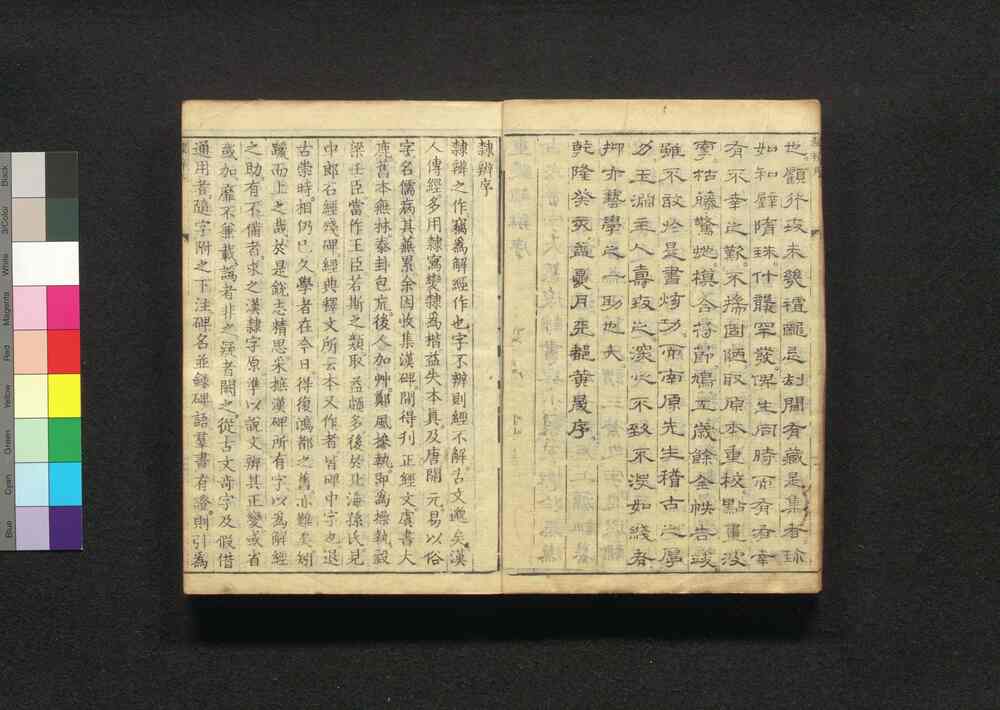 未幾 間有藏是集者珍
如和璧隋珠什襲罕發 生同時而有者幸
有不幸之歎不揣固陋取原本重校點畫波
枯藤驚虵模合苻節鳩工歲餘全帙告竣
雖不敢於是書 功而南原先生稽古之學
力玉淵主人壽 之深心不致不 如綫者
抑亦藝學之一助也夫
乾隆癸亥 月天都黃晟序
隸辨序
隸辨之作竊為解經作也字不辨則經不解古文邈矣漢
人傳經多用隸寫變隸為楷益失本真及唐開元易以俗
字名儒病其蕪累余因收集漢碑間得刊正經文虞書大
鹿舊本無林泰卦包㡃後人加艸鄭風摻執即為操執穀
梁壬臣當作王臣若斯之類取益頗多後於北海孫氏見
中郎石經殘碑經典釋文所云本又作者皆碑中字也退
古崇時相仍已久學者在今日得復鴻都之舊亦難矣矧
躐而上之哉於是銳志精思采摭漢碑所有字以為解經
之助有不備者求之漢隸字原準以說文辨其正變或省
或加靡不兼載譌者非之疑者闕之從古文奇字及假借
通用者隨字附之下注碑名並錄碑語羣書有證則引為
Black
3/Color
White
Magenta
Red
Yellow
Green
Cyan
Blue